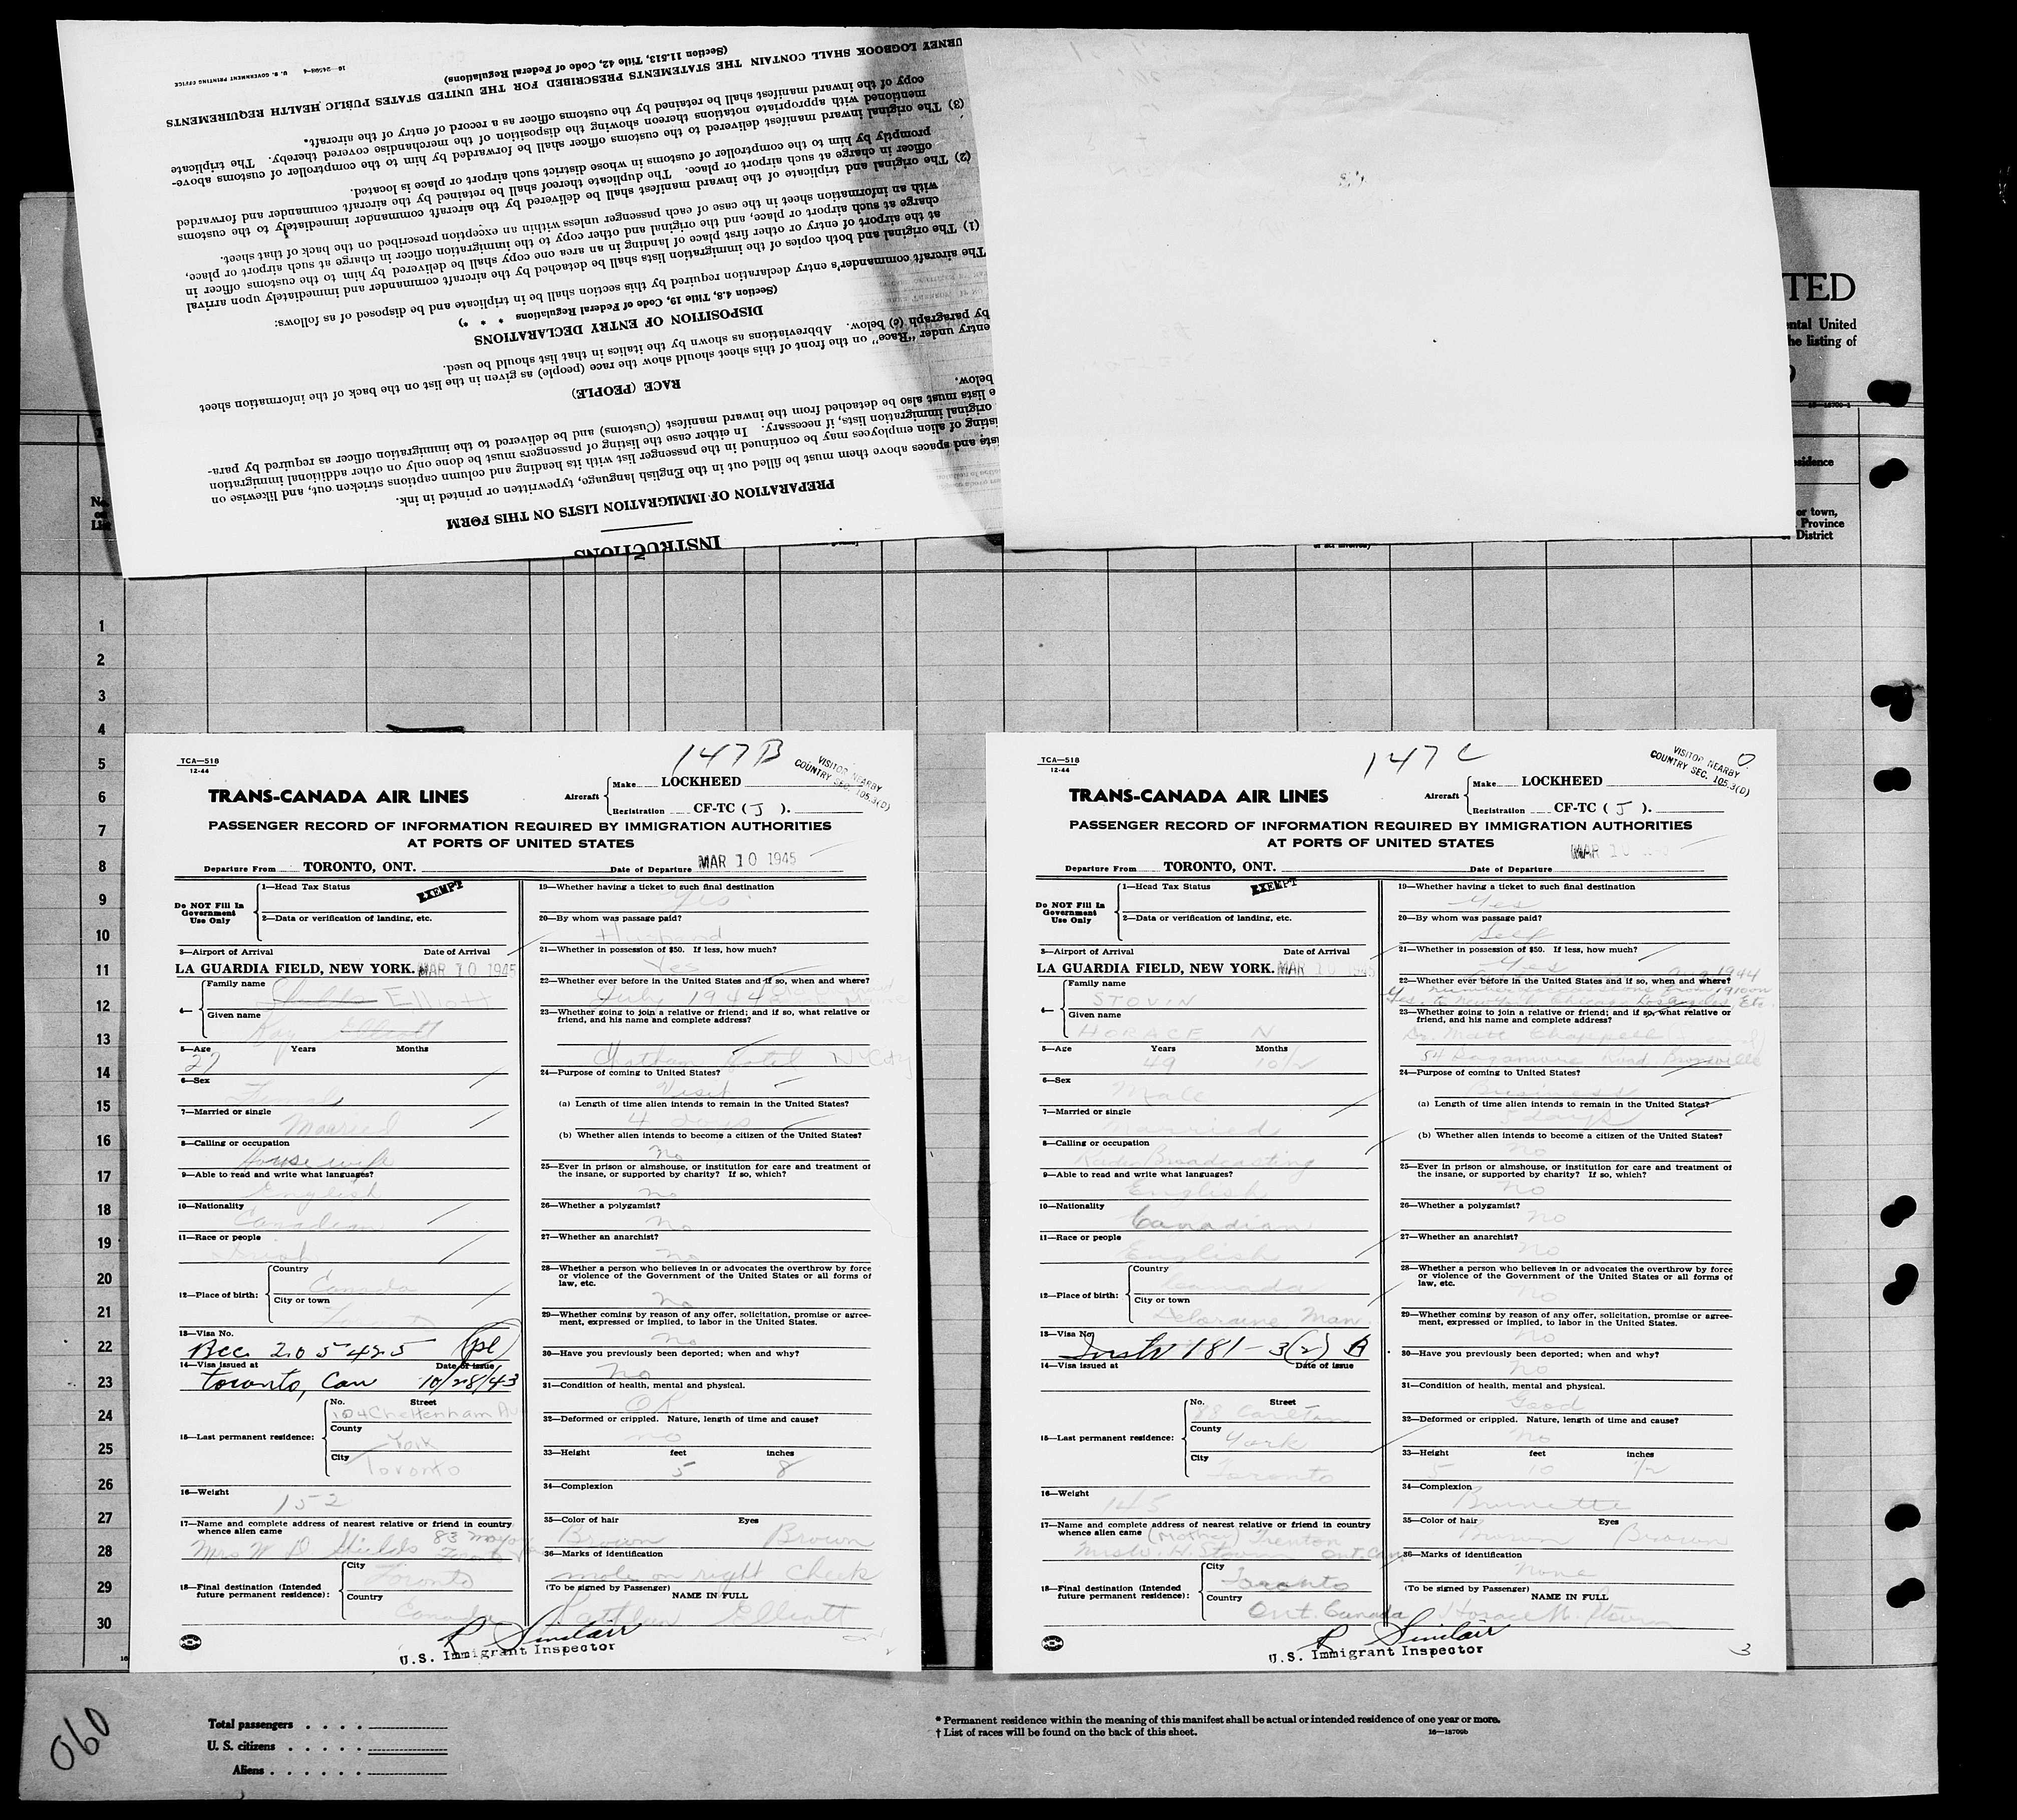 INSTRUCTIONS
PREPARATION OF IMMIGRATION LISTS ON THIS FORM
sts and spaces above them must be filled out in the English language, typewritten or printed in ink.
isting of alien employees may be continued in the passenger list with its heading and column captions stricken out, and likewise on
original immigration lists, if necessary. In either case the listing of passengers must be done only on other additional immigration
e lists must also be detached from the inward manifest (Customs) and be delivered to the immigration officer as required by para-
below.
RACE (PEOPLE)
entry under "Race" on the front of this sheet should show the race (people) as given in the list on the back of the information sheet
by paragraph (c) below. Abbreviations as shown by the italics in that list should be used.
DISPOSITION OF ENTRY DECLARATIONS
(Section 4.8, Title 19, Code of Federal Regulations * * *)
The aircraft commander's entry declaration required by this section shall be in triplicate and be disposed of as follows:
(1) The original and both copies of the immigration lists shall be detached by the aircraft commander and immediately upon arrival
at the airport of entry or other first place of landing in an area one copy shall be delivered by him to the customs officer in
charge at such airport or place, and the original and other copy to the immigration officer in charge at such airport or place,
with an information sheet in the case of each passenger unless within an exception prescribed on the back of that sheet.
(2) The original and triplicate of the inward manifest shall be delivered by the aircraft commander immediately to the customs
officer in charge at such airport or place. The duplicate thereof shall be retained by the aircraft commander and forwarded
promptly by him to the comptroller of customs in whose district such airport or place is located.
(3) The original inward manifest delivered to the customs officer shall be forwarded by him to the comptroller of customs above-
mentioned with appropriate notations thereon showing the disposition of the merchandise covered thereby. The triplicate
copy of the inward manifest shall be retained by the customs officer as a record of entry of the aircraft.
URNEY LOGBOOK SHALL CONTAIN THE STATEMENTS PRESCRIBED FOR THE UNITED STATES PUBLIC HEALTH REQUIREMENTS
(Section 11.513, Title 42, Code of Federal Regulations)
U. S. GOVERNMENT PRINTING OFFICE
TED
ental United
he listing of
sidence
or town,
Province
District
No.
on
List
1
2
3
4
5
6
7
8
9
10
11
12
13
14
15
16
17
18
19
20
21
22
23
24
25
26
27
28
29
30
147B
TCA—518
12-44
VISITOR NEARBY
COUNTRY SEC. 105.3(D)
TRANS-CANADA AIR LINES
Aircraft
Make LOCKHEED
Registration CF-TC ( J ).
PASSENGER RECORD OF INFORMATION REQUIRED BY IMMIGRATION AUTHORITIES
AT PORTS OF UNITED STATES
Departure From TORONTO, ONT. Date of Departure MAR 10 1945
Do NOT Fill In
Government
Use Only
1—Head Tax Status EXEMPT
2—Data or verification of landing, etc.
3—Airport of Arrival Date of Arrival
LA GUARDIA FIELD, NEW YORK. MAR 10 1945
4— Family name Elliott
Given name Kay
5—Age Years Months
27
6—Sex
Female
7—Married or single
Married
8—Calling or occupation
Housewife
9—Able to read and write what languages?
English
10—Nationality
Canadian
11—Race or people
Irish
12—Place of birth:
Country
Canada
City or town
Toronto
13—Visa No.
Bcc 205425 (pl)
14—Visa issued at Date of issue
Toronto, Can 10/28/43
15—Last permanent residence:
No. Street
104 Cheltenham Av
County
York
City
Toronto
16—Weight
152
17—Name and complete address of nearest relative or friend in country
whence alien came
Mrs W D Shields 83
18—Final destination (Intended
future permanent residence):
City
Toronto
Country
Canada
19—Whether having a ticket to such final destination
Yes
20—By whom was passage paid?
Husband
21—Whether in possession of $50. If less, how much?
Yes
22—Whether ever before in the United States and if so, when and where?
July 1944
23—Whether going to join a relative or friend; and if so, what relative or
friend, and his name and complete address?
Chatham Hotel NYC
24—Purpose of coming to United States?
Visit
(a) Length of time alien intends to remain in the United States?
4 days
(b) Whether alien intends to become a citizen of the United States?
no
25—Ever in prison or almshouse, or institution for care and treatment of
the insane, or supported by charity? If so, which?
no
26—Whether a polygamist?
no
27—Whether an anarchist?
no
28—Whether a person who believes in or advocates the overthrow by force
or violence of the Government of the United States or all forms of
law, etc.
no
29—Whether coming by reason of any offer, solicitation, promise or agree-
ment, expressed or implied, to labor in the United States.
no
30—Have you previously been deported; when and why?
no
31—Condition of health, mental and physical.
OK
32—Deformed or crippled. Nature, length of time and cause?
no
33—Height feet inches
5 8
34—Complexion
35—Color of hair Eyes
Brown Brown
36—Marks of identification
mole on right cheek
(To be signed by Passenger) NAME IN FULL
Kathleen Elliott
R Sinclair
U.S. Immigrant Inspector
147C
TCA—518
12-44
VISITOR NEARBY
COUNTRY SEC. 105.3(D)
TRANS-CANADA AIR LINES
Aircraft
Make LOCKHEED
Registration CF-TC ( J ).
PASSENGER RECORD OF INFORMATION REQUIRED BY IMMIGRATION AUTHORITIES
AT PORTS OF UNITED STATES
Departure From TORONTO, ONT. Date of Departure MAR 10
Do NOT Fill In
Government
Use Only
1—Head Tax Status EXEMPT
2—Data or verification of landing, etc.
3—Airport of Arrival Date of Arrival
LA GUARDIA FIELD, NEW YORK. MAR 10 1945
4— Family name
STOVIN
Given name
HORACE N
5—Age Years Months
49 10½
6—Sex
Male
7—Married or single
Married
8—Calling or occupation
Radio Broadcasting
9—Able to read and write what languages?
English
10—Nationality
Canadian
11—Race or people
English
12—Place of birth:
Country
Canada
City or town
Deloraine Man
13—Visa No.
Instr 181-3(2) B
14—Visa issued at Date of issue
15—Last permanent residence:
No. Street
88 Carlton
County
York
City
Toronto
16—Weight
145
17—Name and complete address of nearest relative or friend in country
whence alien came (Mother) Trenton
Mrs W. H. Stovin Ont. Can
18—Final destination (Intended
future permanent residence):
City
Toronto
Country
Ont. Canada
19—Whether having a ticket to such final destination
Yes
20—By whom was passage paid?
Self
21—Whether in possession of $50. If less, how much?
Yes
22—Whether ever before in the United States and if so, when and where?
Aug 1944
Yes, to New York Chicago Los Angeles Etc.
23—Whether going to join a relative or friend; and if so, what relative or
friend, and his name and complete address?
Dr. Matt Chappell
54 Sagamore Road, Bronxville
24—Purpose of coming to United States?
Business
(a) Length of time alien intends to remain in the United States?
days
(b) Whether alien intends to become a citizen of the United States?
no
25—Ever in prison or almshouse, or institution for care and treatment of
the insane, or supported by charity? If so, which?
no
26—Whether a polygamist?
no
27—Whether an anarchist?
no
28—Whether a person who believes in or advocates the overthrow by force
or violence of the Government of the United States or all forms of
law, etc.
no
29—Whether coming by reason of any offer, solicitation, promise or agree-
ment, expressed or implied, to labor in the United States.
no
30—Have you previously been deported; when and why?
no
31—Condition of health, mental and physical.
Good
32—Deformed or crippled. Nature, length of time and cause?
no
33—Height feet inches
5 10 ½
34—Complexion
Brunette
35—Color of hair Eyes
Brown Brown
36—Marks of identification
none
(To be signed by Passenger) NAME IN FULL
Horace N. Stovin
R Sinclair
U.S. Immigrant Inspector
3
060
Total passengers
U. S. citizens
Aliens
* Permanent residence within the meaning of this manifest shall be actual or intended residence of one year or more.
† List of races will be found on the back of this sheet.
16—18709b